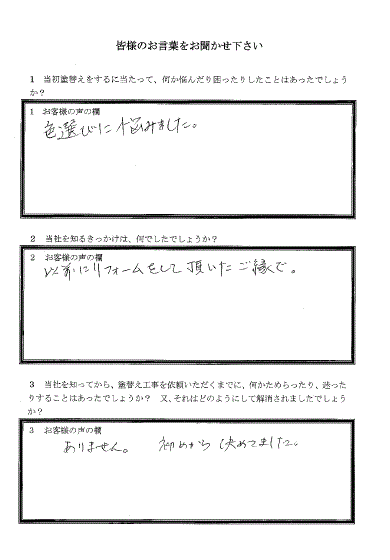 皆様のお言葉をお聞かせ下さい
1 当初塗替えをするに当たって、何か悩んだり困ったりしたことはあったでしょう
か?
1 お客様の声の欄
色選びに悩みました。
2 当社を知るきっかけは、何でしたでしょうか?
2 お客様の声の欄
以前にリフォームをして頂いたご縁で。
3 当社を知ってから、塗替え工事を依頼いただくまでに、何かためらったり、迷った
りすることはあったでしょうか? 又、それはどのようにして解消されましたでしょう
か?
3 お客様の声の欄
ありません。 初めから決めてました。